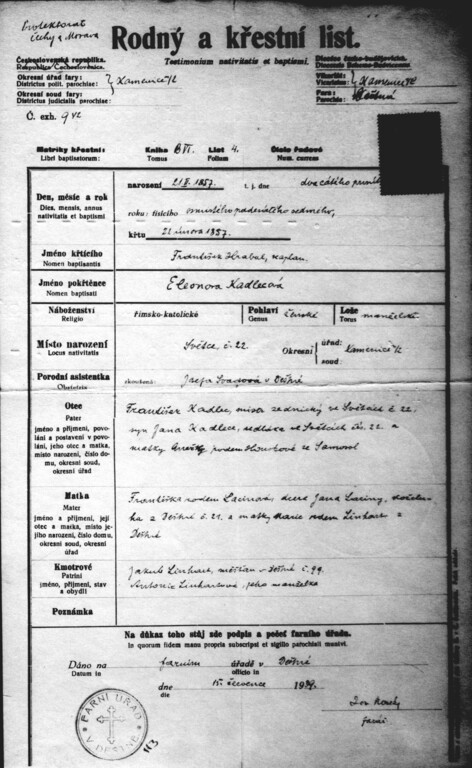 Protektorat
Čechy a Morava
Rodný a křestní list.
Testimonium nativitatis et baptismi.
Československá republika.
Respublica Čechoslovenica.
Okresní úřad fary:
Districtus polit. parochiae:
Kamenice n/L
Okresní soud fary:
Districtus judicialis parochiae:
Č. exh. 942
Vikariát:
Vicariatus:
Kamenice n/L
Fara:
Parochia:
Deštná
Matriky křestní:
Libri baptisatorum:
Kniha
Tomus
List 4.
Folium
Číslo řadové
Num. currens
Den, měsíc a rok
Dies, mensis, annus
nativitatis et baptismi
narození 21/II. 1857. t. j. dne dvacátého prvního
roku: tisícího osmistého padesátého sedmého,
křtu 21 února 1857.
Jméno křtícího
Nomen baptisantis
František Hrabal, kaplan.
Jméno pokřtěnce
Nomen baptisati
Eleonora Kadlecová
Náboženství
Religio
římsko-katolické
Pohlaví
Genus
ženské
Lože
Torus
manželské
Místo narození
Locus nativitatis
Světce č. 22.
Okresní
úřad:
soud:
Kamenice n/L
Porodní asistentka
Obstetrix
zkoušená: v Deštné
Otec
Pater
jméno a příjmení, povolání
a postavení v povolání,
jeho otec a matka,
místo narození, číslo domu,
okresní soud,
okresní úřad
František Kadlec, mistr zednický ve Světcích č. 22.
syn Jana Kadlece, sedláka ve Světcích č. 22 a
matky rodem ze
Matka
Mater
jméno a příjmení, její
otec a matka, místo jejího
narození, číslo domu,
okresní soud, okresní
úřad
Františka rodem Lacinová, dcera Jana Laciny,
z Deštné č. 21. a matky Marie rodem Linhart z
Deštné
Kmotrové
Patrini
jméno, příjmení, stav
a obydlí
Jakub Linhart, měšťan v Deštné č. 99.
Antonie Linhartová, jeho manželka
Poznámka
Na důkaz toho stůj zde podpis a pečeť farního úřadu.
In quorum fidem manu propria subscripsi et sigillo parochiali munivi.
Dáno na farním úřadě v Deštné
Datum in officio in
dne 15. července 1939.
farář.
FARNÍ ÚŘAD
V DEŠTNÉ